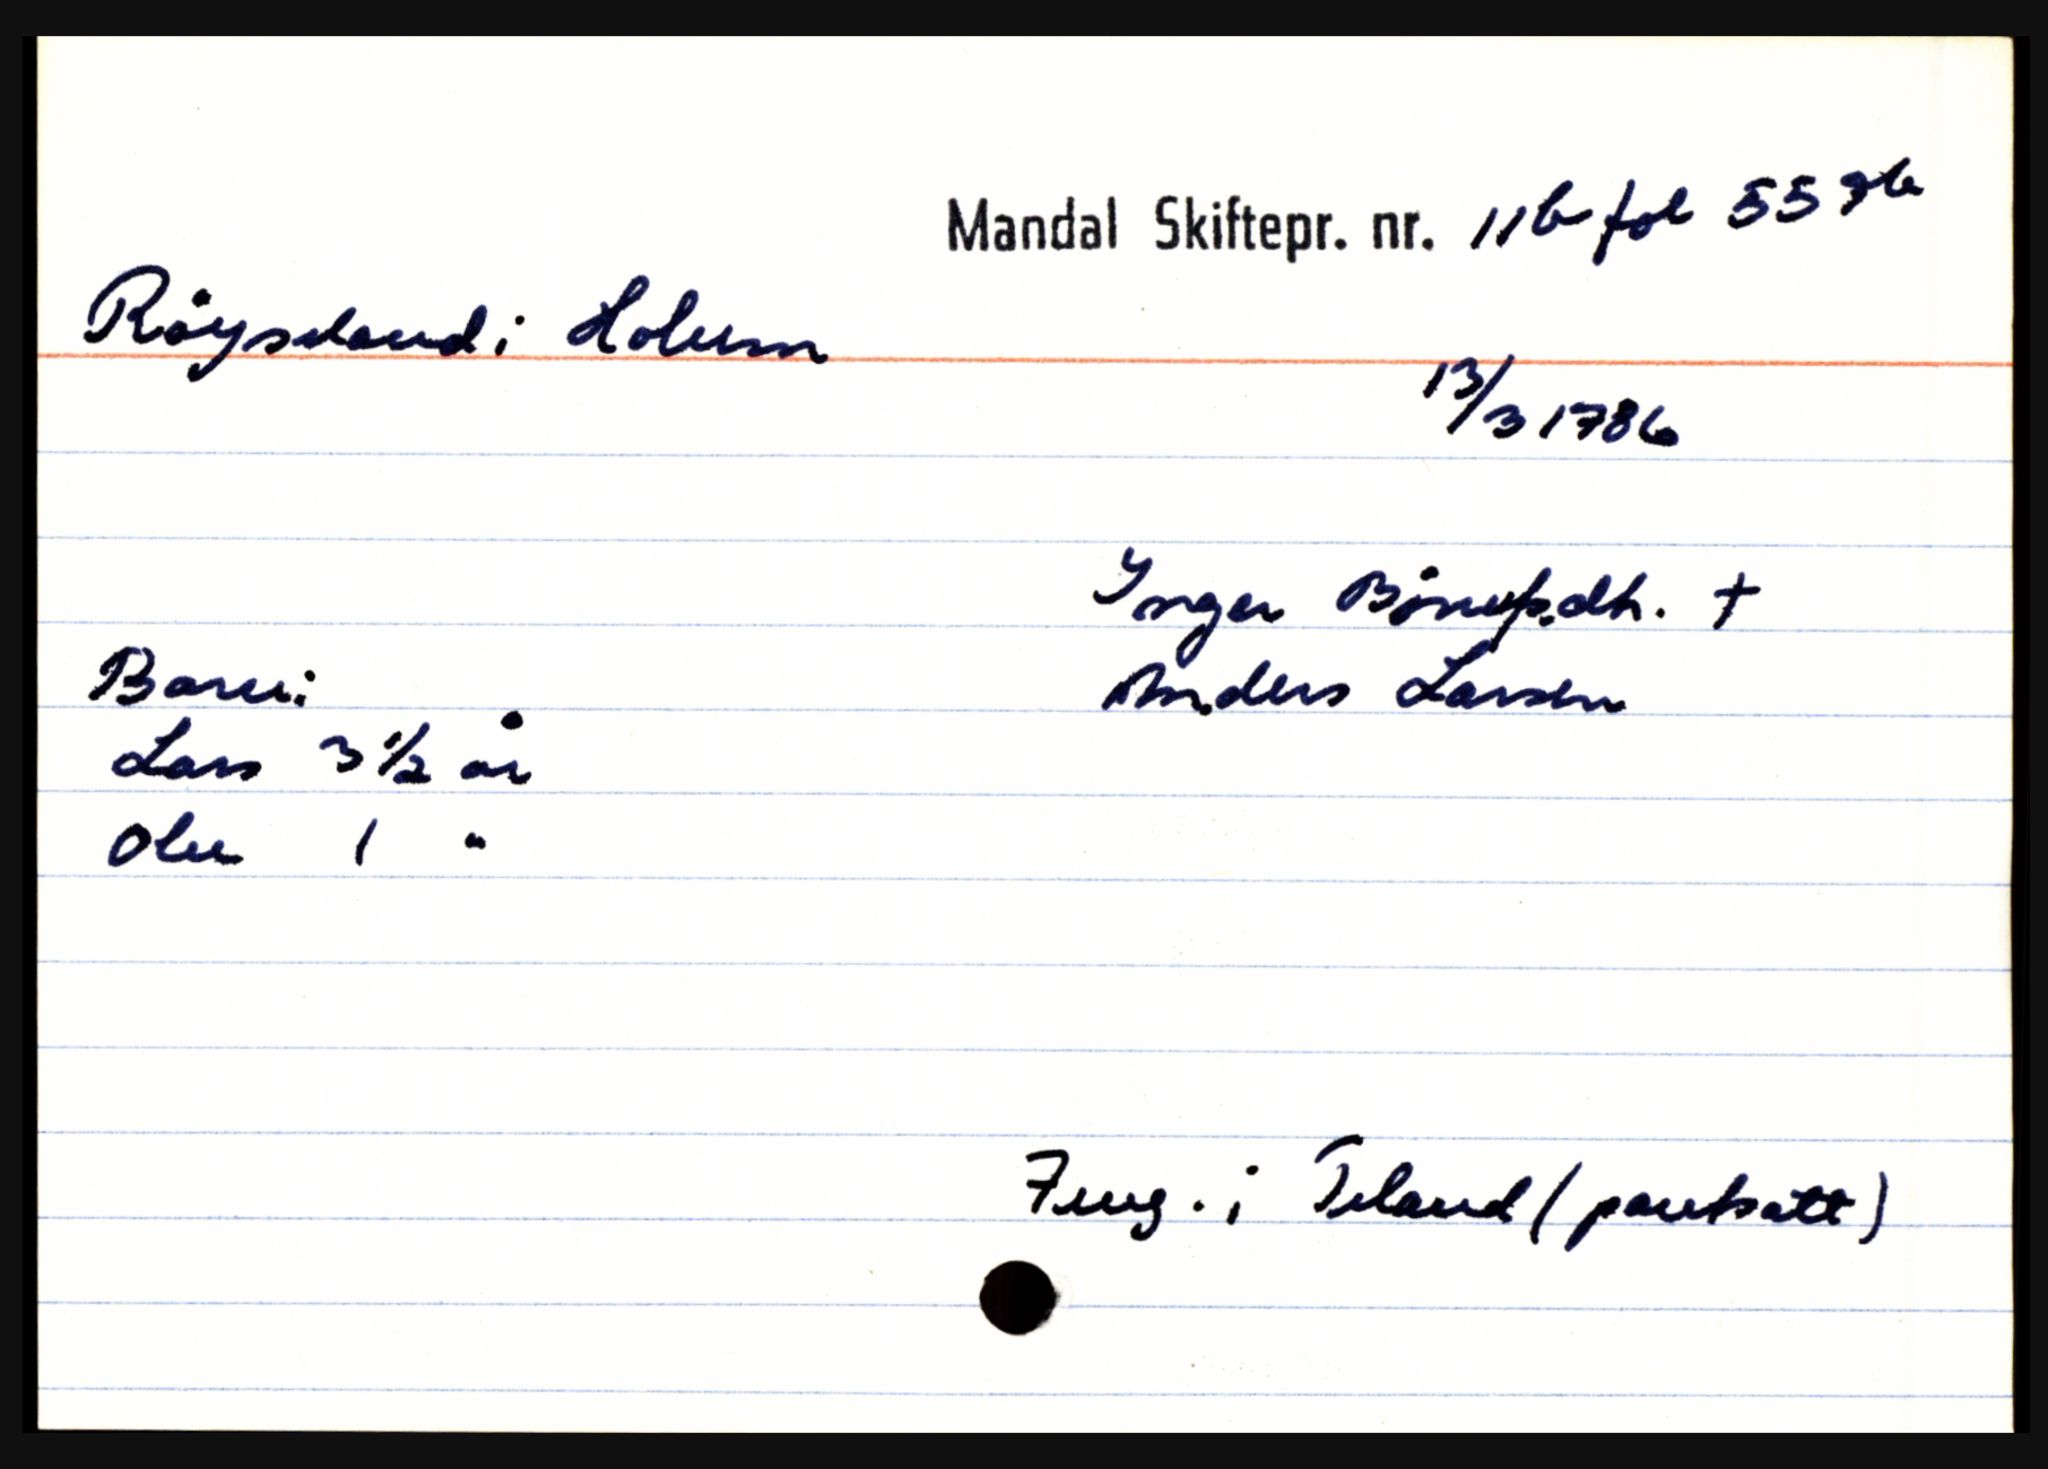 Mandal Skiftepr. nr. 11b fol 557b
Røysland i Holum
13/3 1786
Inger Bønufsdtr. †
Anders Larsen
Barn:
Lars 3 1/2 år
Ole 1 "
i Teland (pantsatt)